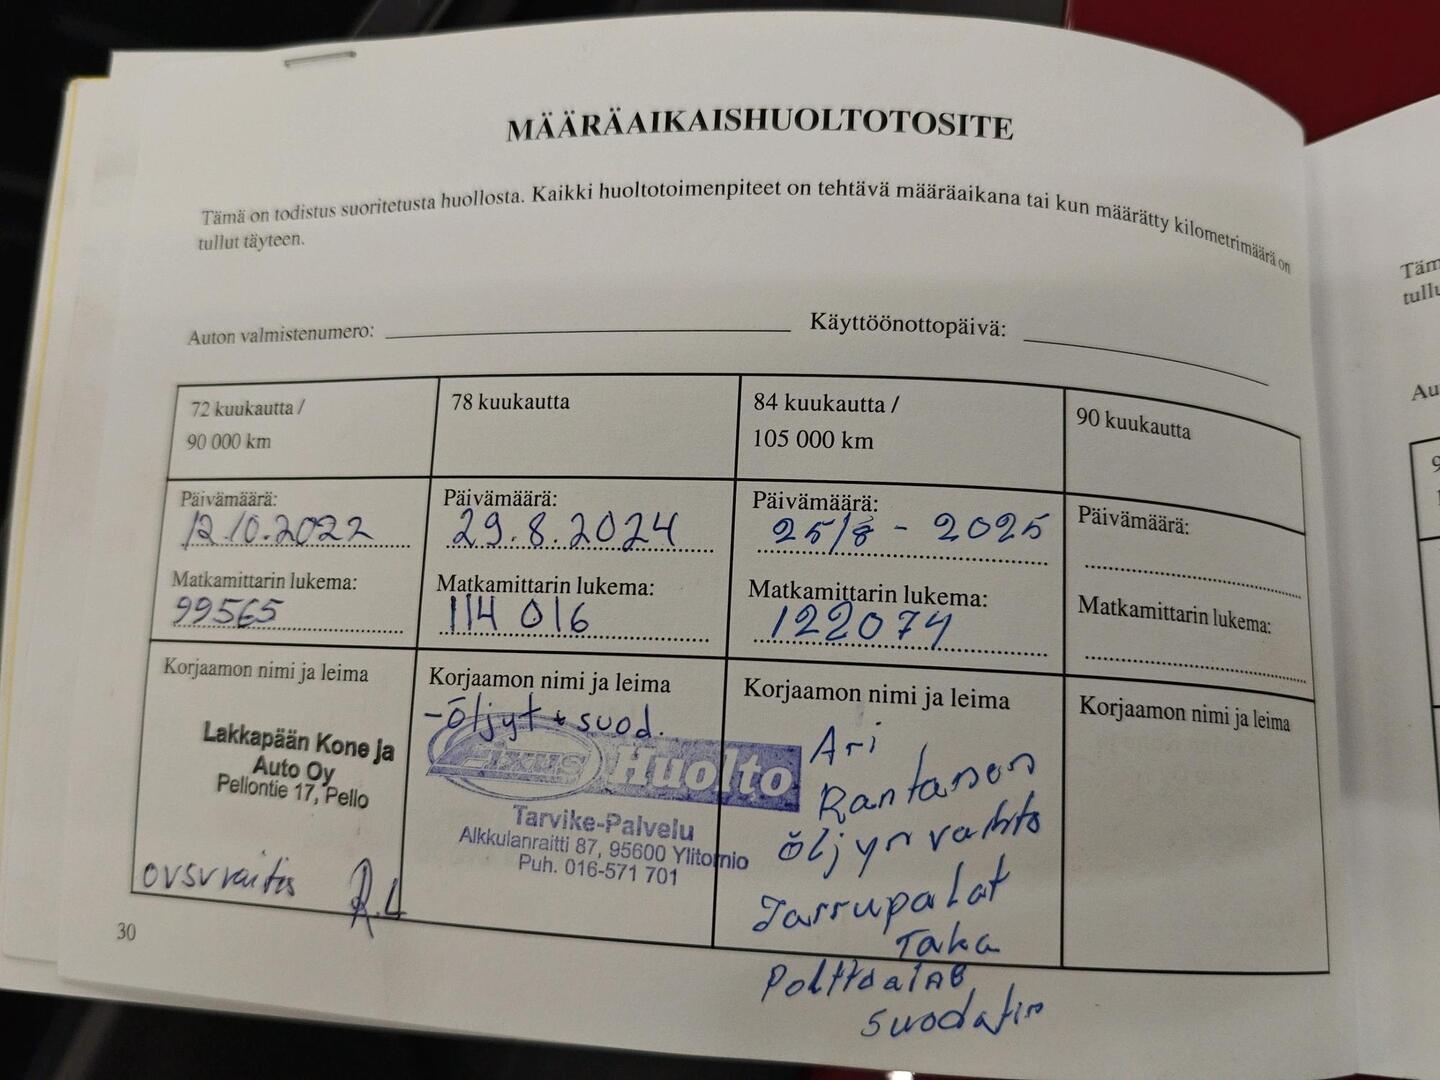 MÄÄRÄAIKAISHUOLTOTOSITE
Tämä on todistus suoritetusta huollosta. Kaikki huoltotoimenpiteet on tehtävä määräaikana tai kun määrätty kilometrimäärä on
tullut täyteen.
Auton valmistenumero:
Käyttöönottopäivä:
72 kuukautta /
90 000 km
Päivämäärä:
12.10.2022
Matkamittarin lukema:
99565
Korjaamon nimi ja leima
Lakkapään Kone ja
Auto Oy
Pellontie 17, Pello
R.L
78 kuukautta
Päivämäärä:
29.8.2024
Matkamittarin lukema:
114 016
Korjaamon nimi ja leima
-Öljyt + suod.
Fixus Huolto
Tarvike-Palvelu
Alkkulanraitti 87, 95600 Ylitornio
Puh. 016-571 701
84 kuukautta /
105 000 km
Päivämäärä:
25/8 - 2025
Matkamittarin lukema:
122074
Korjaamon nimi ja leima
Ari
Rantanen
Öljyn vaihto
Jarrupalat
Taka
suodatin
90 kuukautta
Päivämäärä:
Matkamittarin lukema:
Korjaamon nimi ja leima
30
Täm
tullu
Au